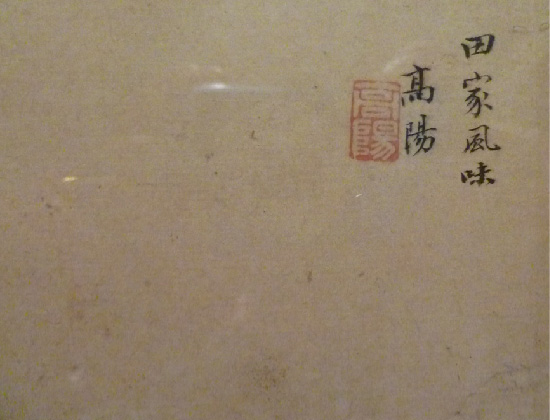 田家風味
高陽
高陽